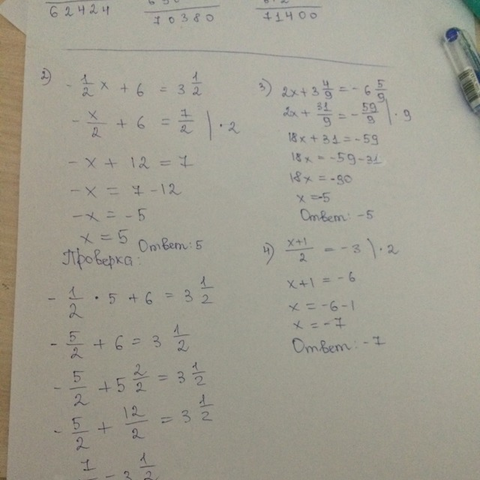 62424
70380
71400
2) -1/2 x + 6 = 3 1/2
-x/2 + 6 = 7/2 | · 2
-x + 12 = 7
-x = 7 - 12
-x = -5
x = 5 Ответ: 5
Проверка:
-1/2 · 5 + 6 = 3 1/2
-5/2 + 6 = 3 1/2
-5/2 + 5 2/2 = 3 1/2
-5/2 + 12/2 = 3 1/2
7/ = 3 1/2
3) 2x + 3 4/9 = -6 5/9
2x + 31/9 = -59/9 | · 9
18x + 31 = -59
18x = -59 - 31
18x = -90
x = -5
Ответ: -5
4) x+1/2 = -3 | · 2
x + 1 = -6
x = -6 - 1
x = -7
Ответ: -7